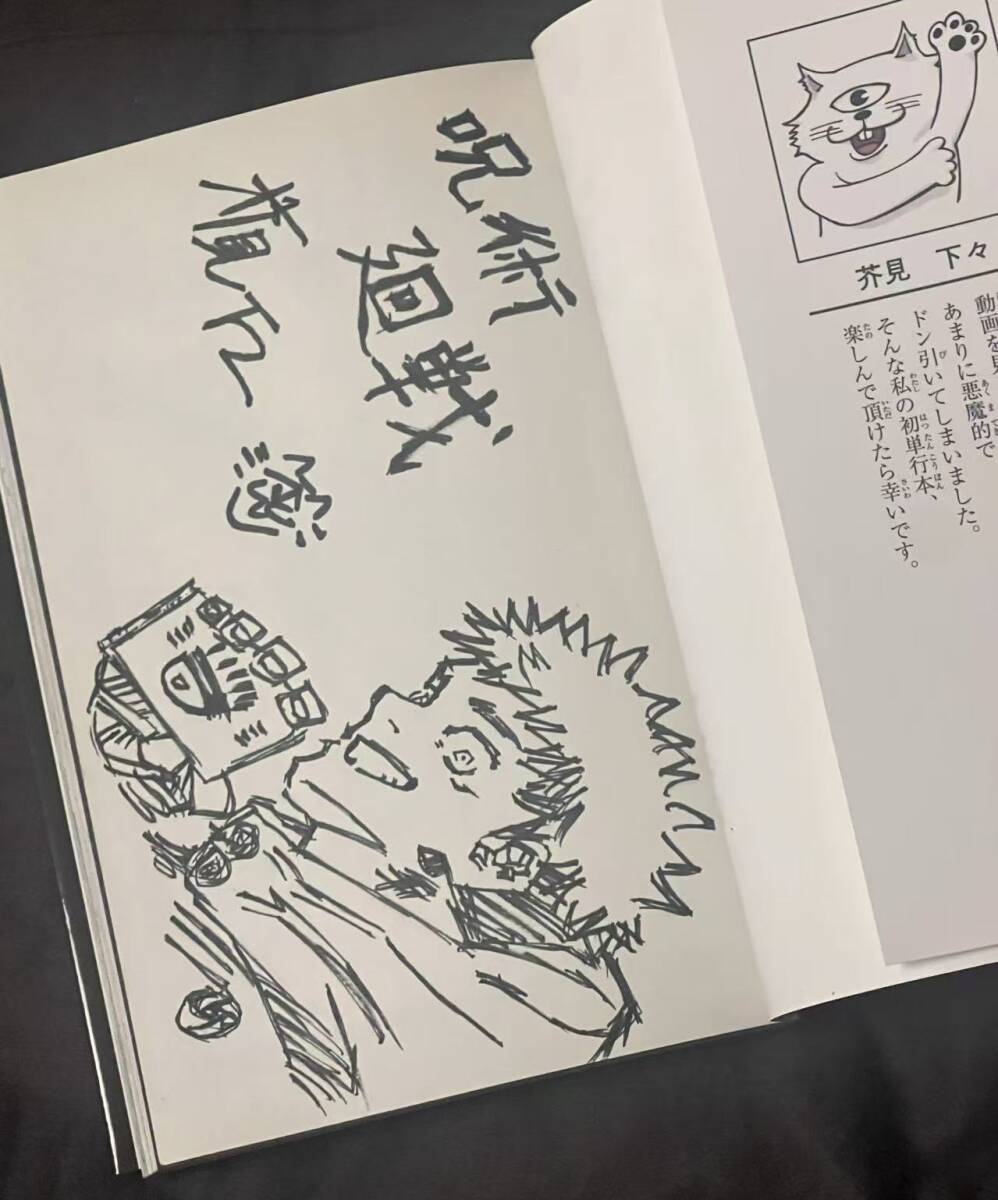 芥見 下々
動画を見
あまりに悪魔的で
ドン引いてしまいました。
そんな私の初単行本、
楽しんで頂けたら幸いです。
呪術
廻戦